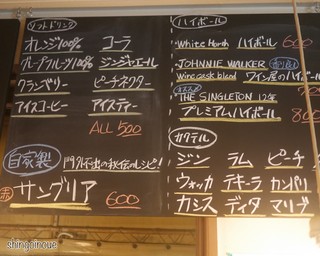 ソフトドリンク
オレンジ100% コーラ
グレープフルーツ100% ジンジャエール
クランベリー ピーチネクター
アイスコーヒー アイスティー
ALL 500
自家製 門外不出の秘伝のレシピ!
赤 サングリア 600
ハイボール
White Horse ハイボール 600
JOHNNIE WALKER
Wine cask blend ワイン屋のハイボール
オススメ
THE SINGLETON 12年
プレミアムハイボール
カクテル
ジン ラム ピーチ
ウォッカ テキーラ カンパリ
カシス ディタ マリブ
shingoinoue